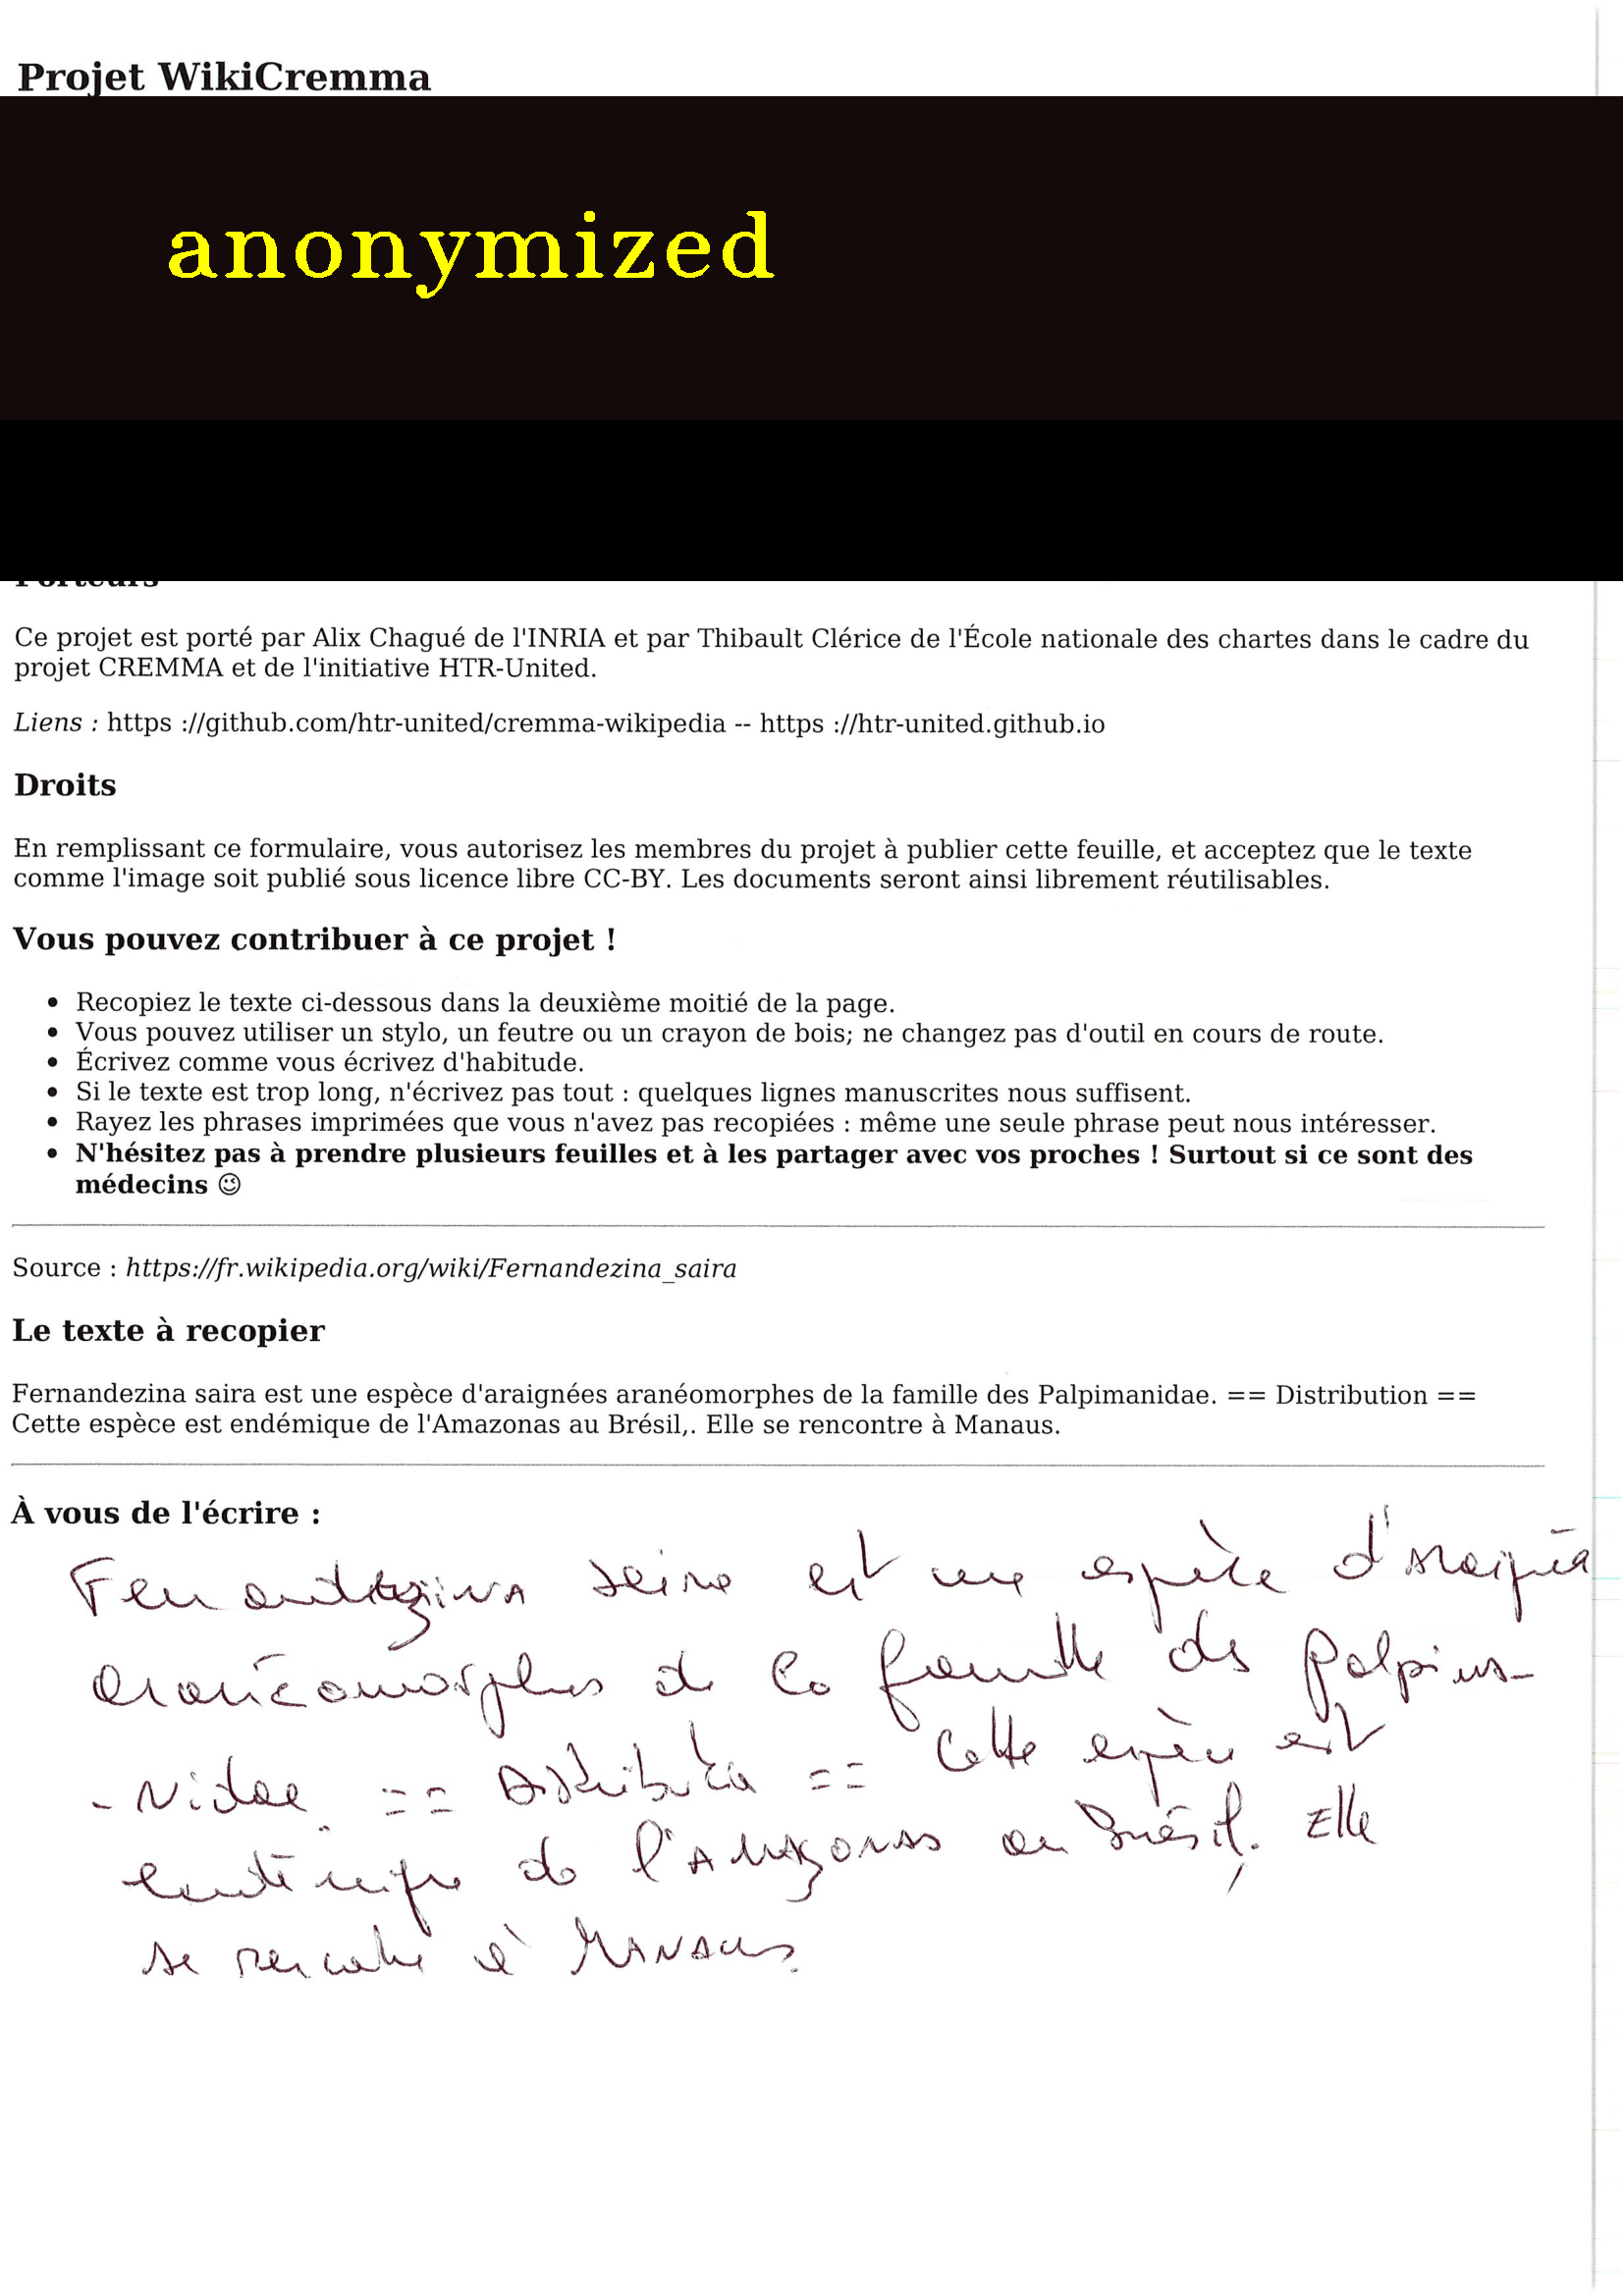 Projet WikiCremma
anonymized
Porteurs
Ce projet est porté par Alix Chagué de l'INRIA et par Thibault Clérice de l'École nationale des chartes dans le cadre du
projet CREMMA et de l'initiative HTR-United.
Liens : https ://github.com/htr-united/cremma-wikipedia -- https ://htr-united.github.io
Droits
En remplissant ce formulaire, vous autorisez les membres du projet à publier cette feuille, et acceptez que le texte
comme l'image soit publié sous licence libre CC-BY. Les documents seront ainsi librement réutilisables.
Vous pouvez contribuer à ce projet !
• Recopiez le texte ci-dessous dans la deuxième moitié de la page.
• Vous pouvez utiliser un stylo, un feutre ou un crayon de bois; ne changez pas d'outil en cours de route.
• Écrivez comme vous écrivez d'habitude.
• Si le texte est trop long, n'écrivez pas tout : quelques lignes manuscrites nous suffisent.
• Rayez les phrases imprimées que vous n'avez pas recopiées : même une seule phrase peut nous intéresser.
• N'hésitez pas à prendre plusieurs feuilles et à les partager avec vos proches ! Surtout si ce sont des
médecins 😉
Source : https://fr.wikipedia.org/wiki/Fernandezina_saira
Le texte à recopier
Fernandezina saira est une espèce d'araignées aranéomorphes de la famille des Palpimanidae. == Distribution ==
Cette espèce est endémique de l'Amazonas au Brésil,. Elle se rencontre à Manaus.
À vous de l'écrire :
Fernandezina saira est une espèce d'araignées
aranéomorphes de la famille des Palpima-
-nidae. == Distribution == Cette espèce est
endémique de l'Amazonas au Brésil,. Elle
se rencontre à Manaus.